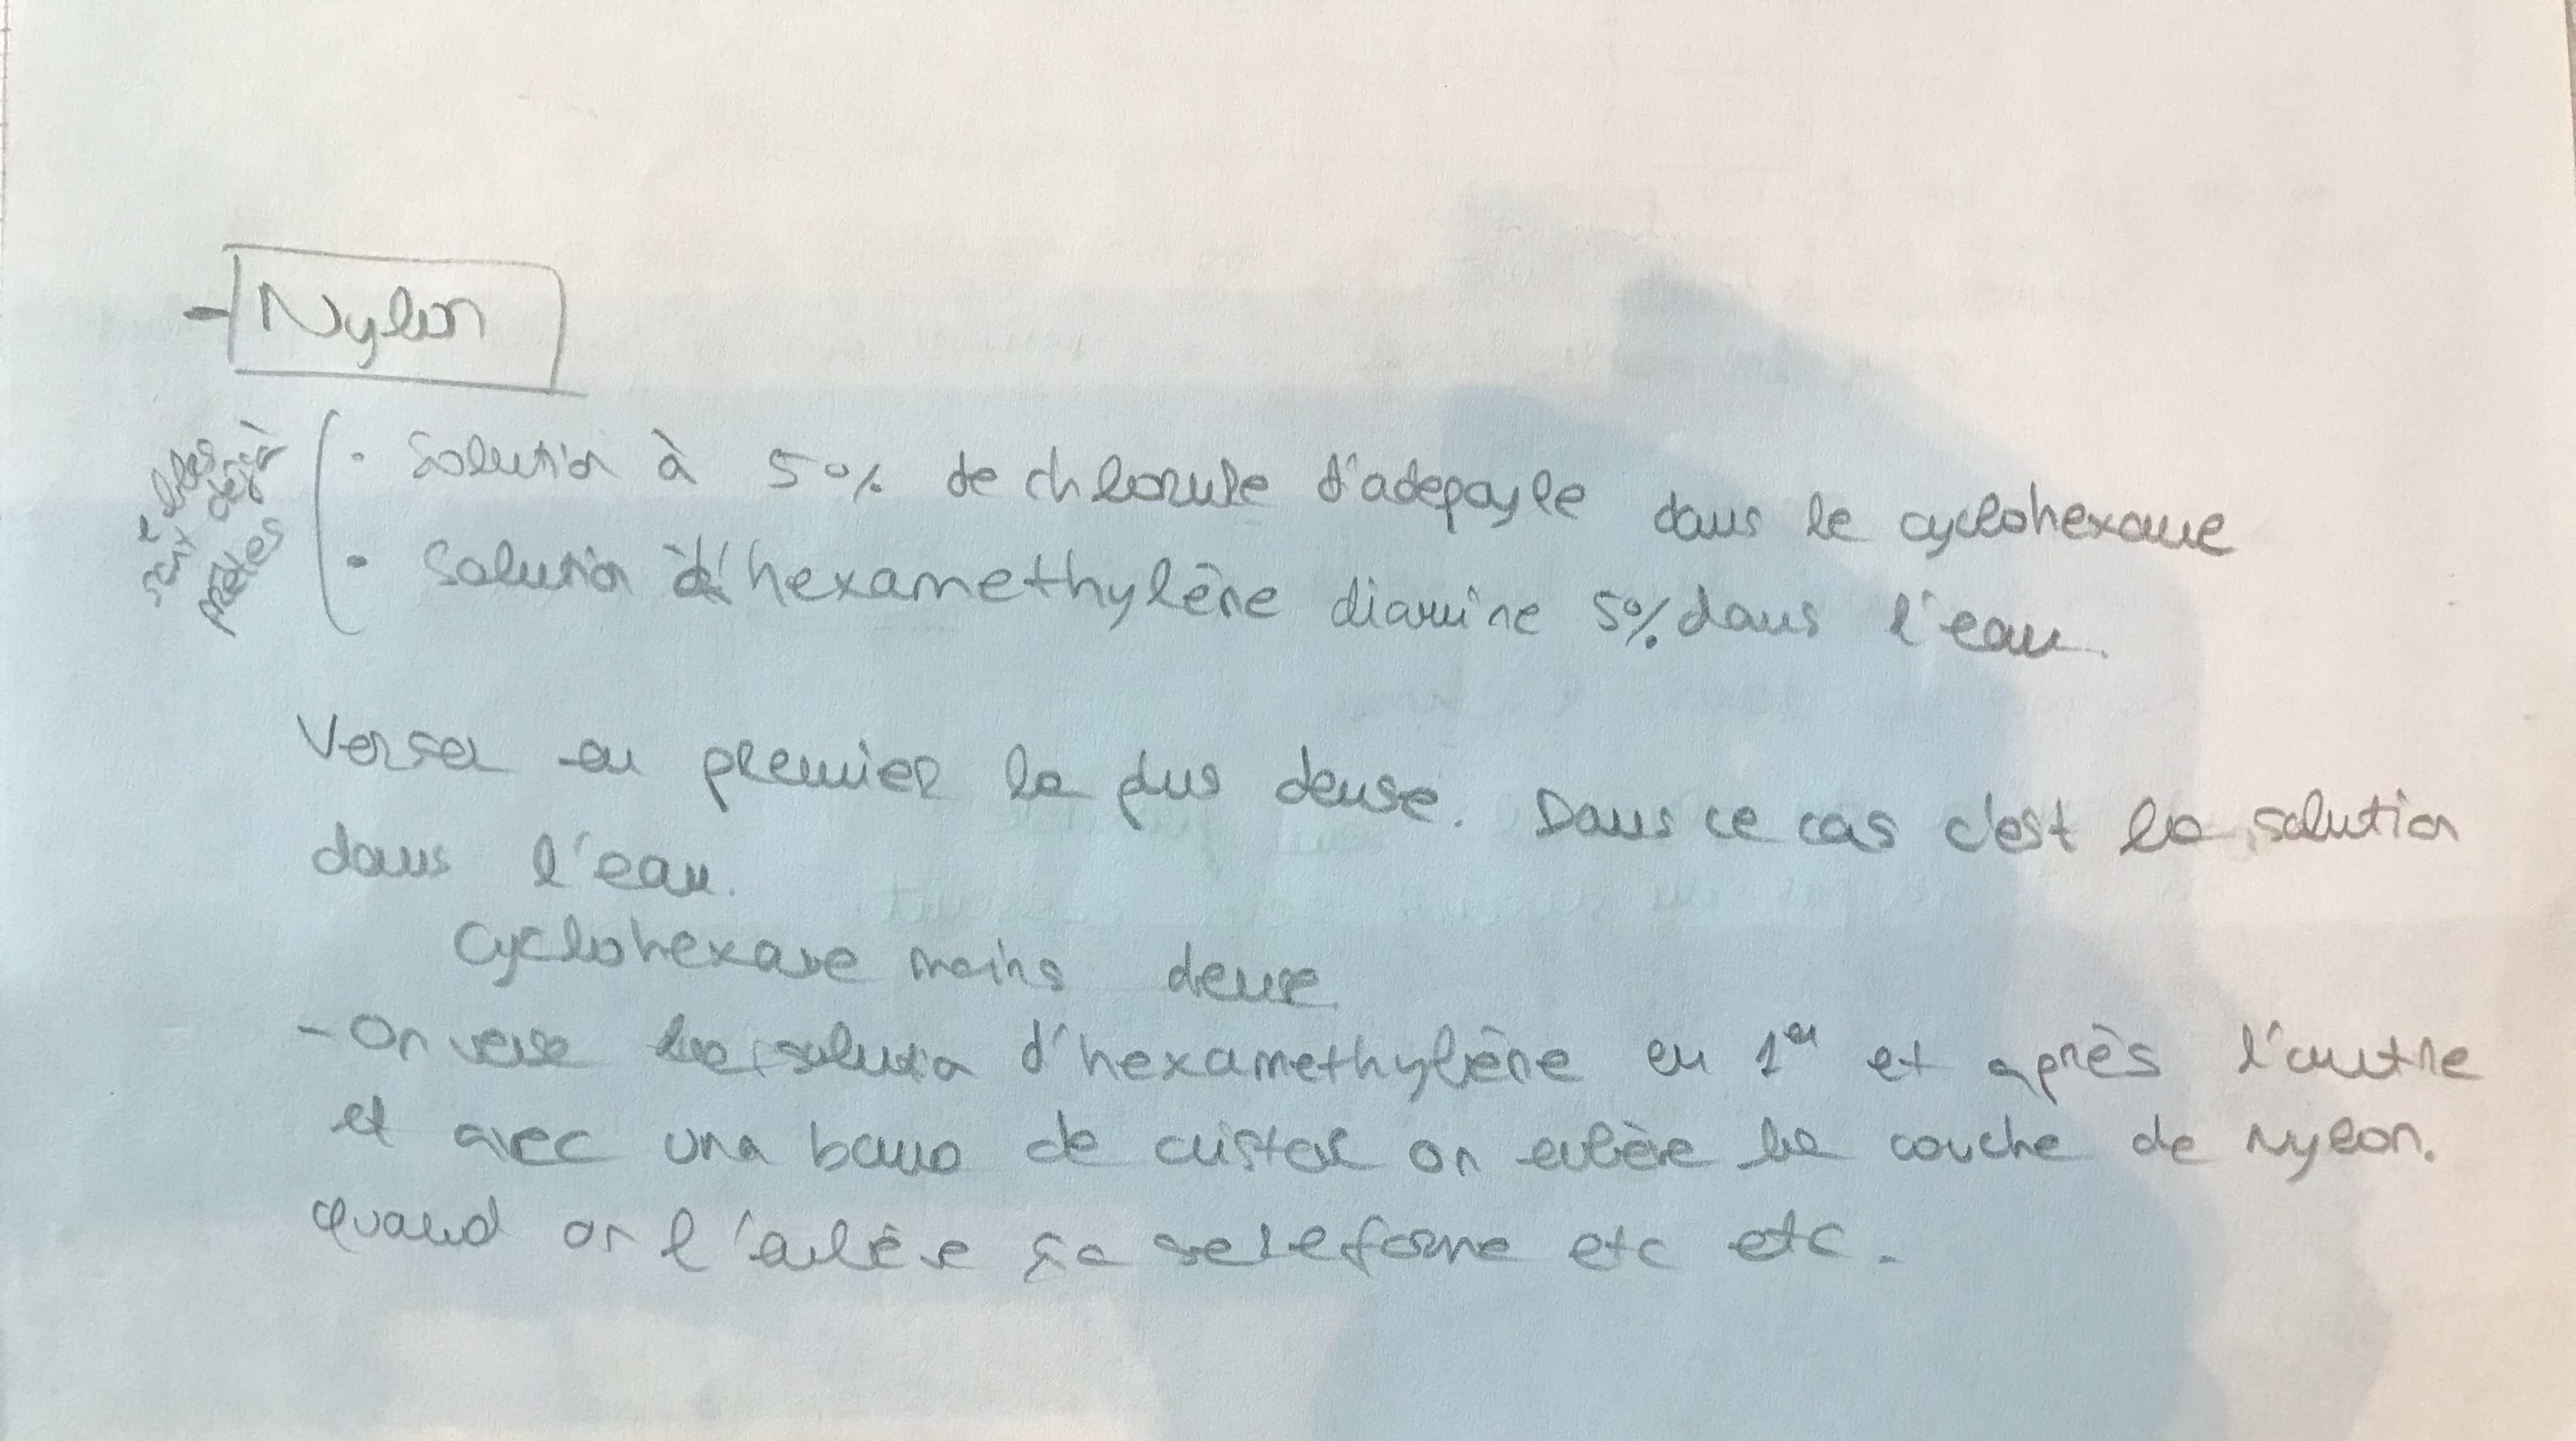 - Nylon
elles
sont déjà
prêtes
· Solution à 5% de chlorure d'adepoyle dans le cyclohexane
· Solution d'hexamethylène diamine 5% dans l'eau.
Verser en premier la plus dense. Dans ce cas c'est la solution
dans l'eau.
Cyclohexane moins dense
- On verse la solution d'hexamethylène en 1er et après l'autre
et avec una de cristal on enlève la couche de Nylon.
quand on l'enlève ça se reforme etc etc.